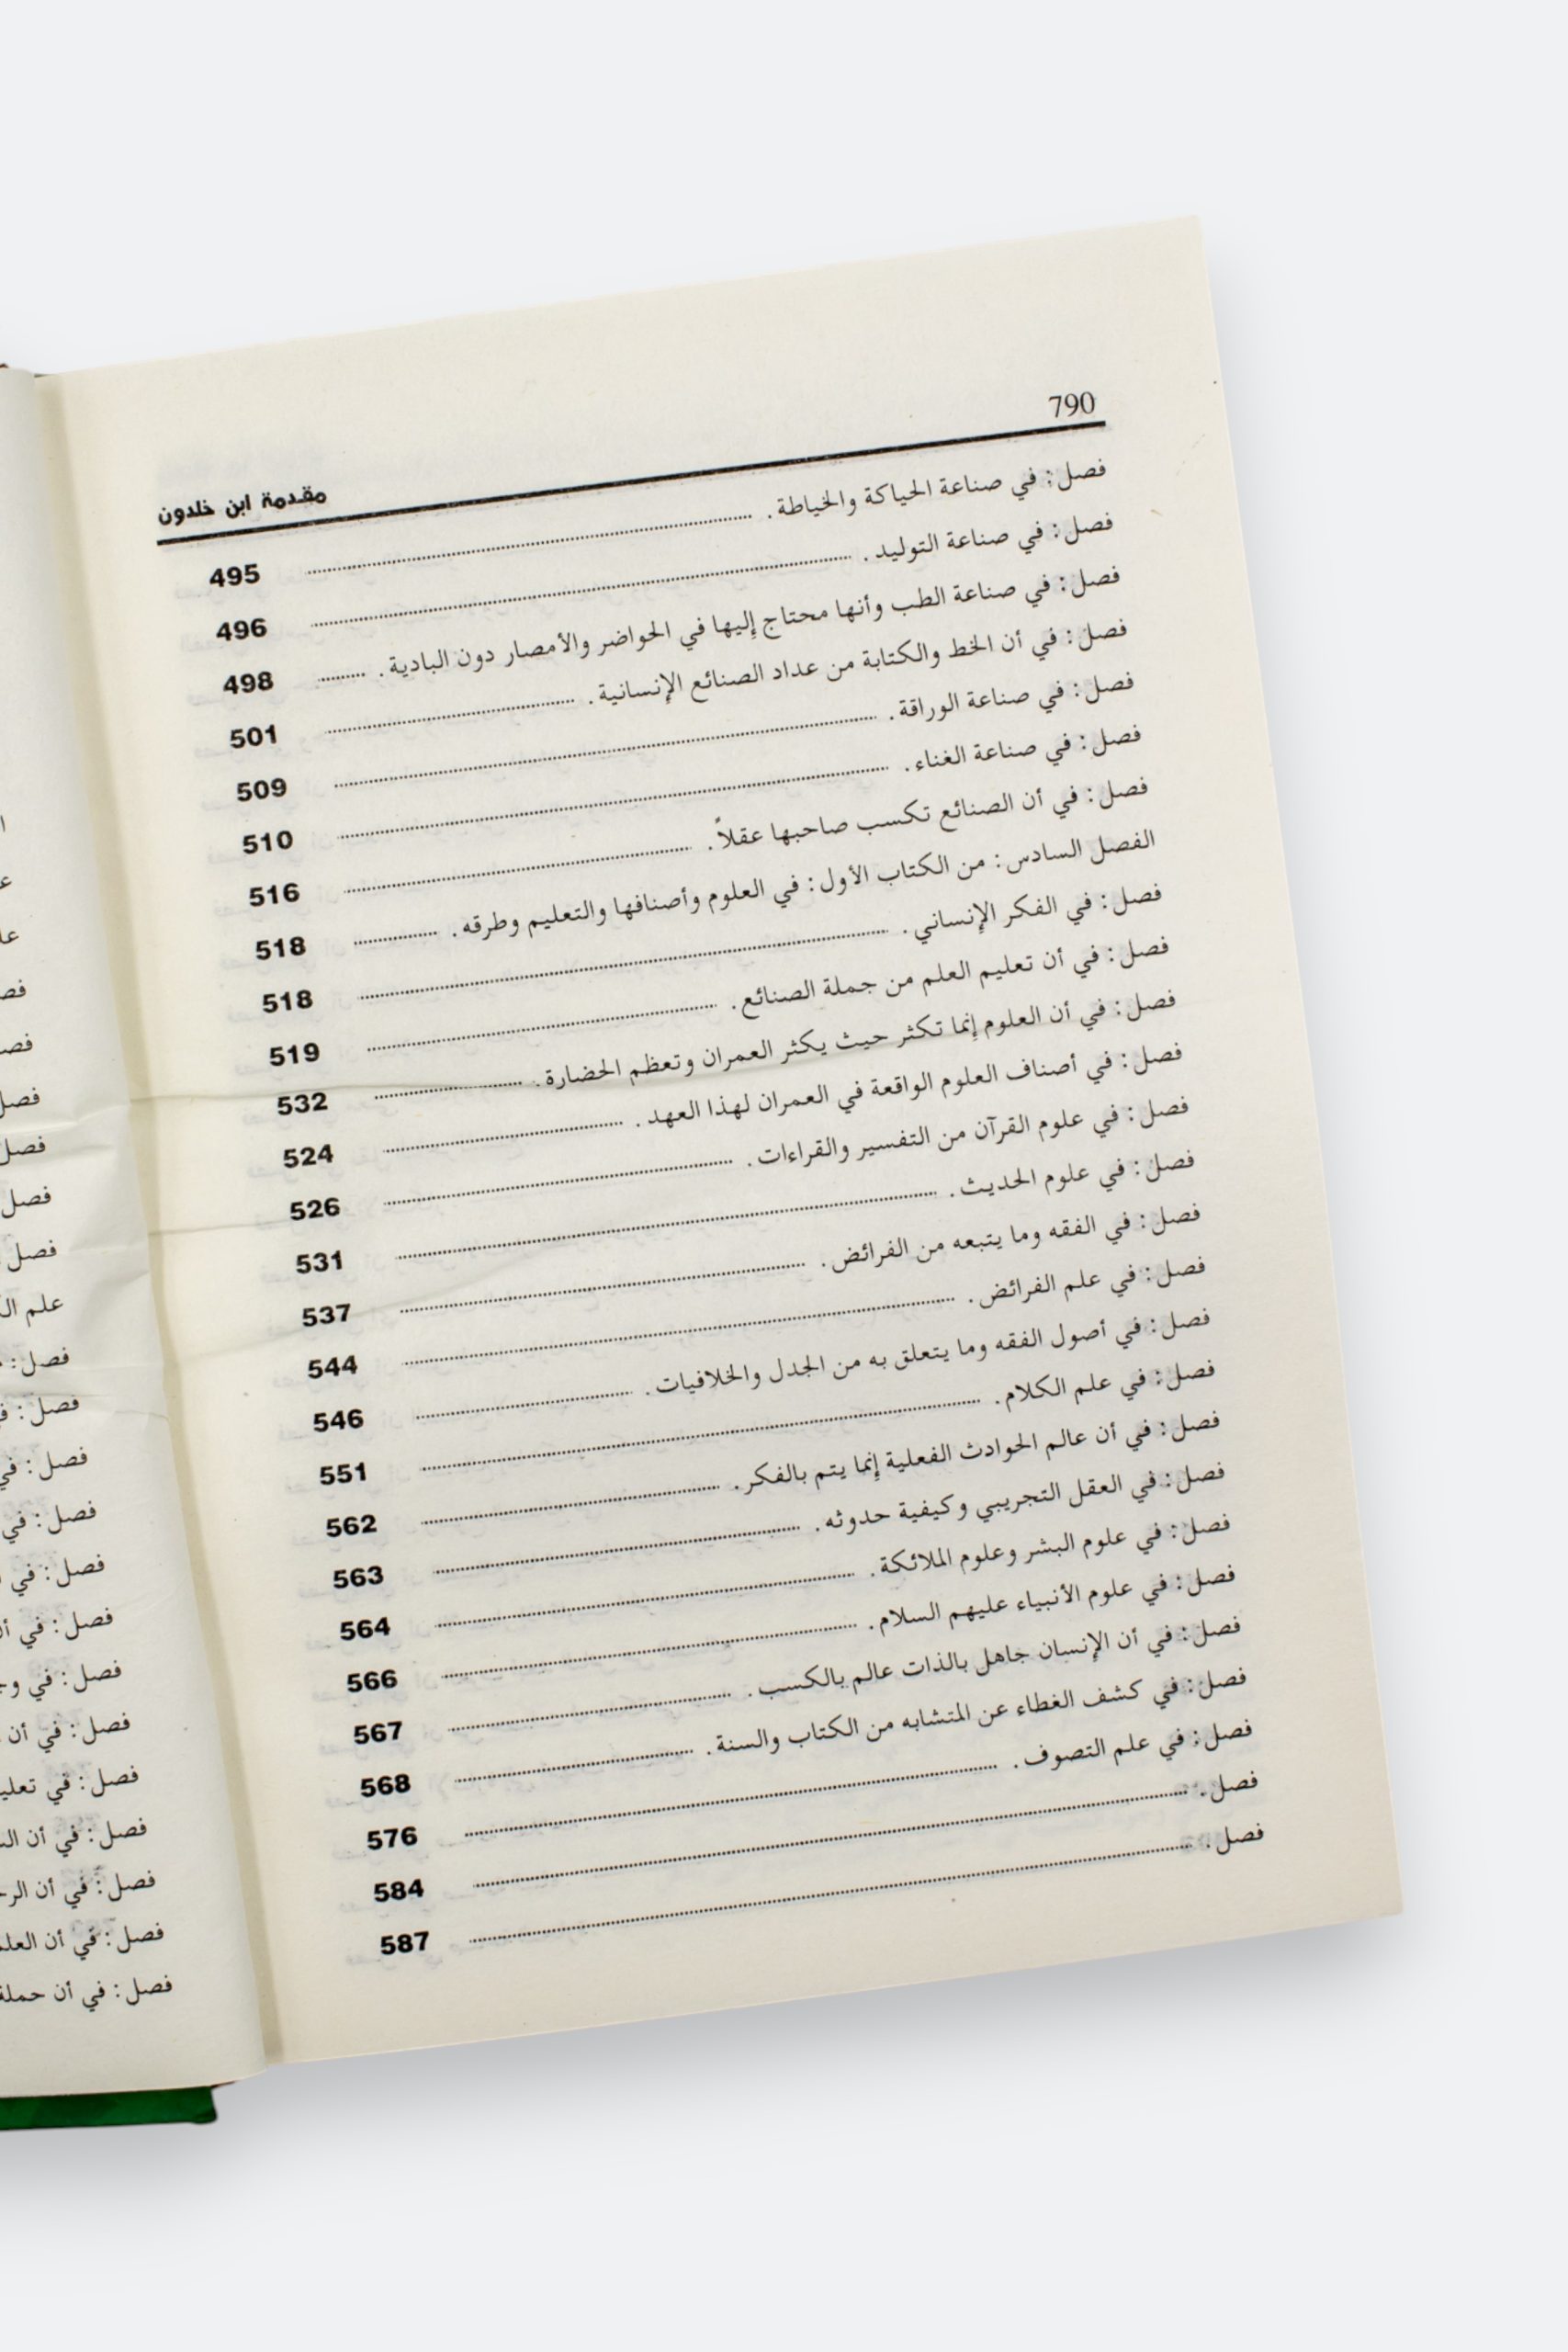 790
مقدمة ابن خلدون
فصل: في صناعة الحياكة والخياطة. 495
فصل: في صناعة التوليد. 496
فصل: في صناعة الطب وأنها محتاج إليها في الحواضر والأمصار دون البادية. 498
فصل: في أن الخط والكتابة من عداد الصنائع الإنسانية. 501
فصل: في صناعة الوراقة. 509
فصل: في صناعة الغناء. 510
فصل: في أن الصنائع تكسب صاحبها عقلاً. 516
الفصل السادس: من الكتاب الأول: في العلوم وأصنافها والتعليم وطرقه. 518
فصل: في الفكر الإنساني. 518
فصل: في أن تعليم العلم من جملة الصنائع. 519
فصل: في أن العلوم إنما تكثر حيث يكثر العمران وتعظم الحضارة. 532
فصل: في أصناف العلوم الواقعة في العمران لهذا العهد. 524
فصل: في علوم القرآن من التفسير والقراءات. 526
فصل: في علوم الحديث. 531
فصل: في الفقه وما يتبعه من الفرائض. 537
فصل: في علم الفرائض. 544
فصل: في أصول الفقه وما يتعلق به من الجدل والخلافيات. 546
فصل: في علم الكلام. 551
فصل: في أن عالم الحوادث الفعلية إنما يتم بالفكر. 562
فصل: في العقل التجريبي وكيفية حدوثه. 563
فصل: في علوم البشر وعلوم الملائكة. 564
فصل: في علوم الأنبياء عليهم السلام. 566
فصل: في أن الإنسان جاهل بالذات عالم بالكسب. 567
فصل: في كشف الغطاء عن المتشابه من الكتاب والسنة. 568
فصل: في علم التصوف. 576
فصل. 584
فصل. 587
فصل
فصل
فصل
فصل
علم
فصل:
فصل:
فصل: في
فصل: في
فصل: في
فصل: في
فصل: في
فصل: في أن
فصل: في
فصل: في أن
فصل: في أن
فصل: في أن
فصل: في أن حملة